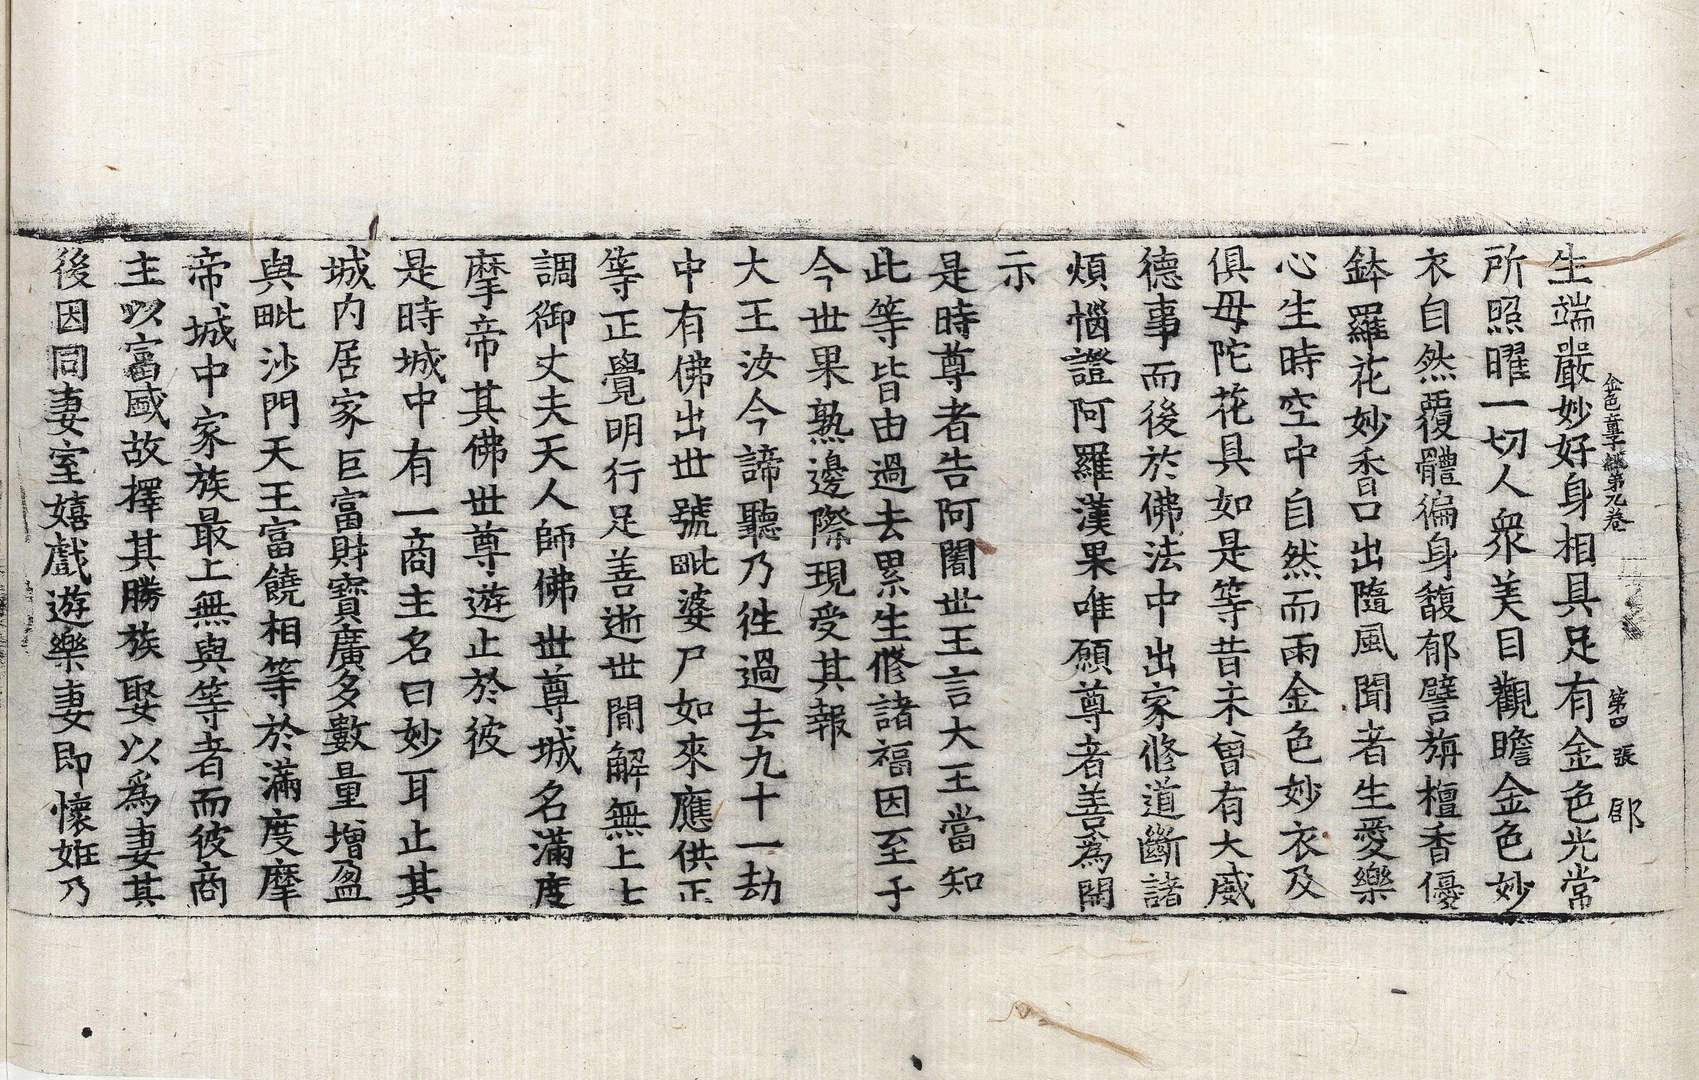 金色童子經第九卷　第四張　郎
生端嚴妙好身相具足有金色光常
所照曜一切人衆美目觀瞻金色妙
衣自然覆體徧身馥郁譬旃檀香優
鉢羅花妙香口出隨風聞者生愛樂
心生時空中自然而雨金色妙衣及
俱毋陀花具如是等昔未曾有大威
德事而後於佛法中出家修道斷諸
煩惱證阿羅漢果唯願尊者善爲開
示
是時尊者告阿闍世王言大王當知
此等皆由過去累生修諸福因至于
今世果熟邊際現受其報
大王汝今諦聽乃徃過去九十一劫
中有佛出世號毗婆尸如來應供正
等正覺明行足善逝世間解無上士
調御丈夫天人師佛世尊城名滿度
摩帝其佛世尊遊止於彼
是時城中有一商主名曰妙耳止其
城内居家巨富財寶廣多數量增盈
與毗沙門天王富饒相等於滿度摩
帝城中家族最上無與等者而彼商
主以富盛故擇其勝族娶以爲妻其
後因同妻室嬉戲遊樂妻即懷姙乃